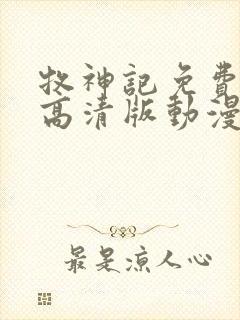 牧神記免費
高清版動漫
最是涼人心